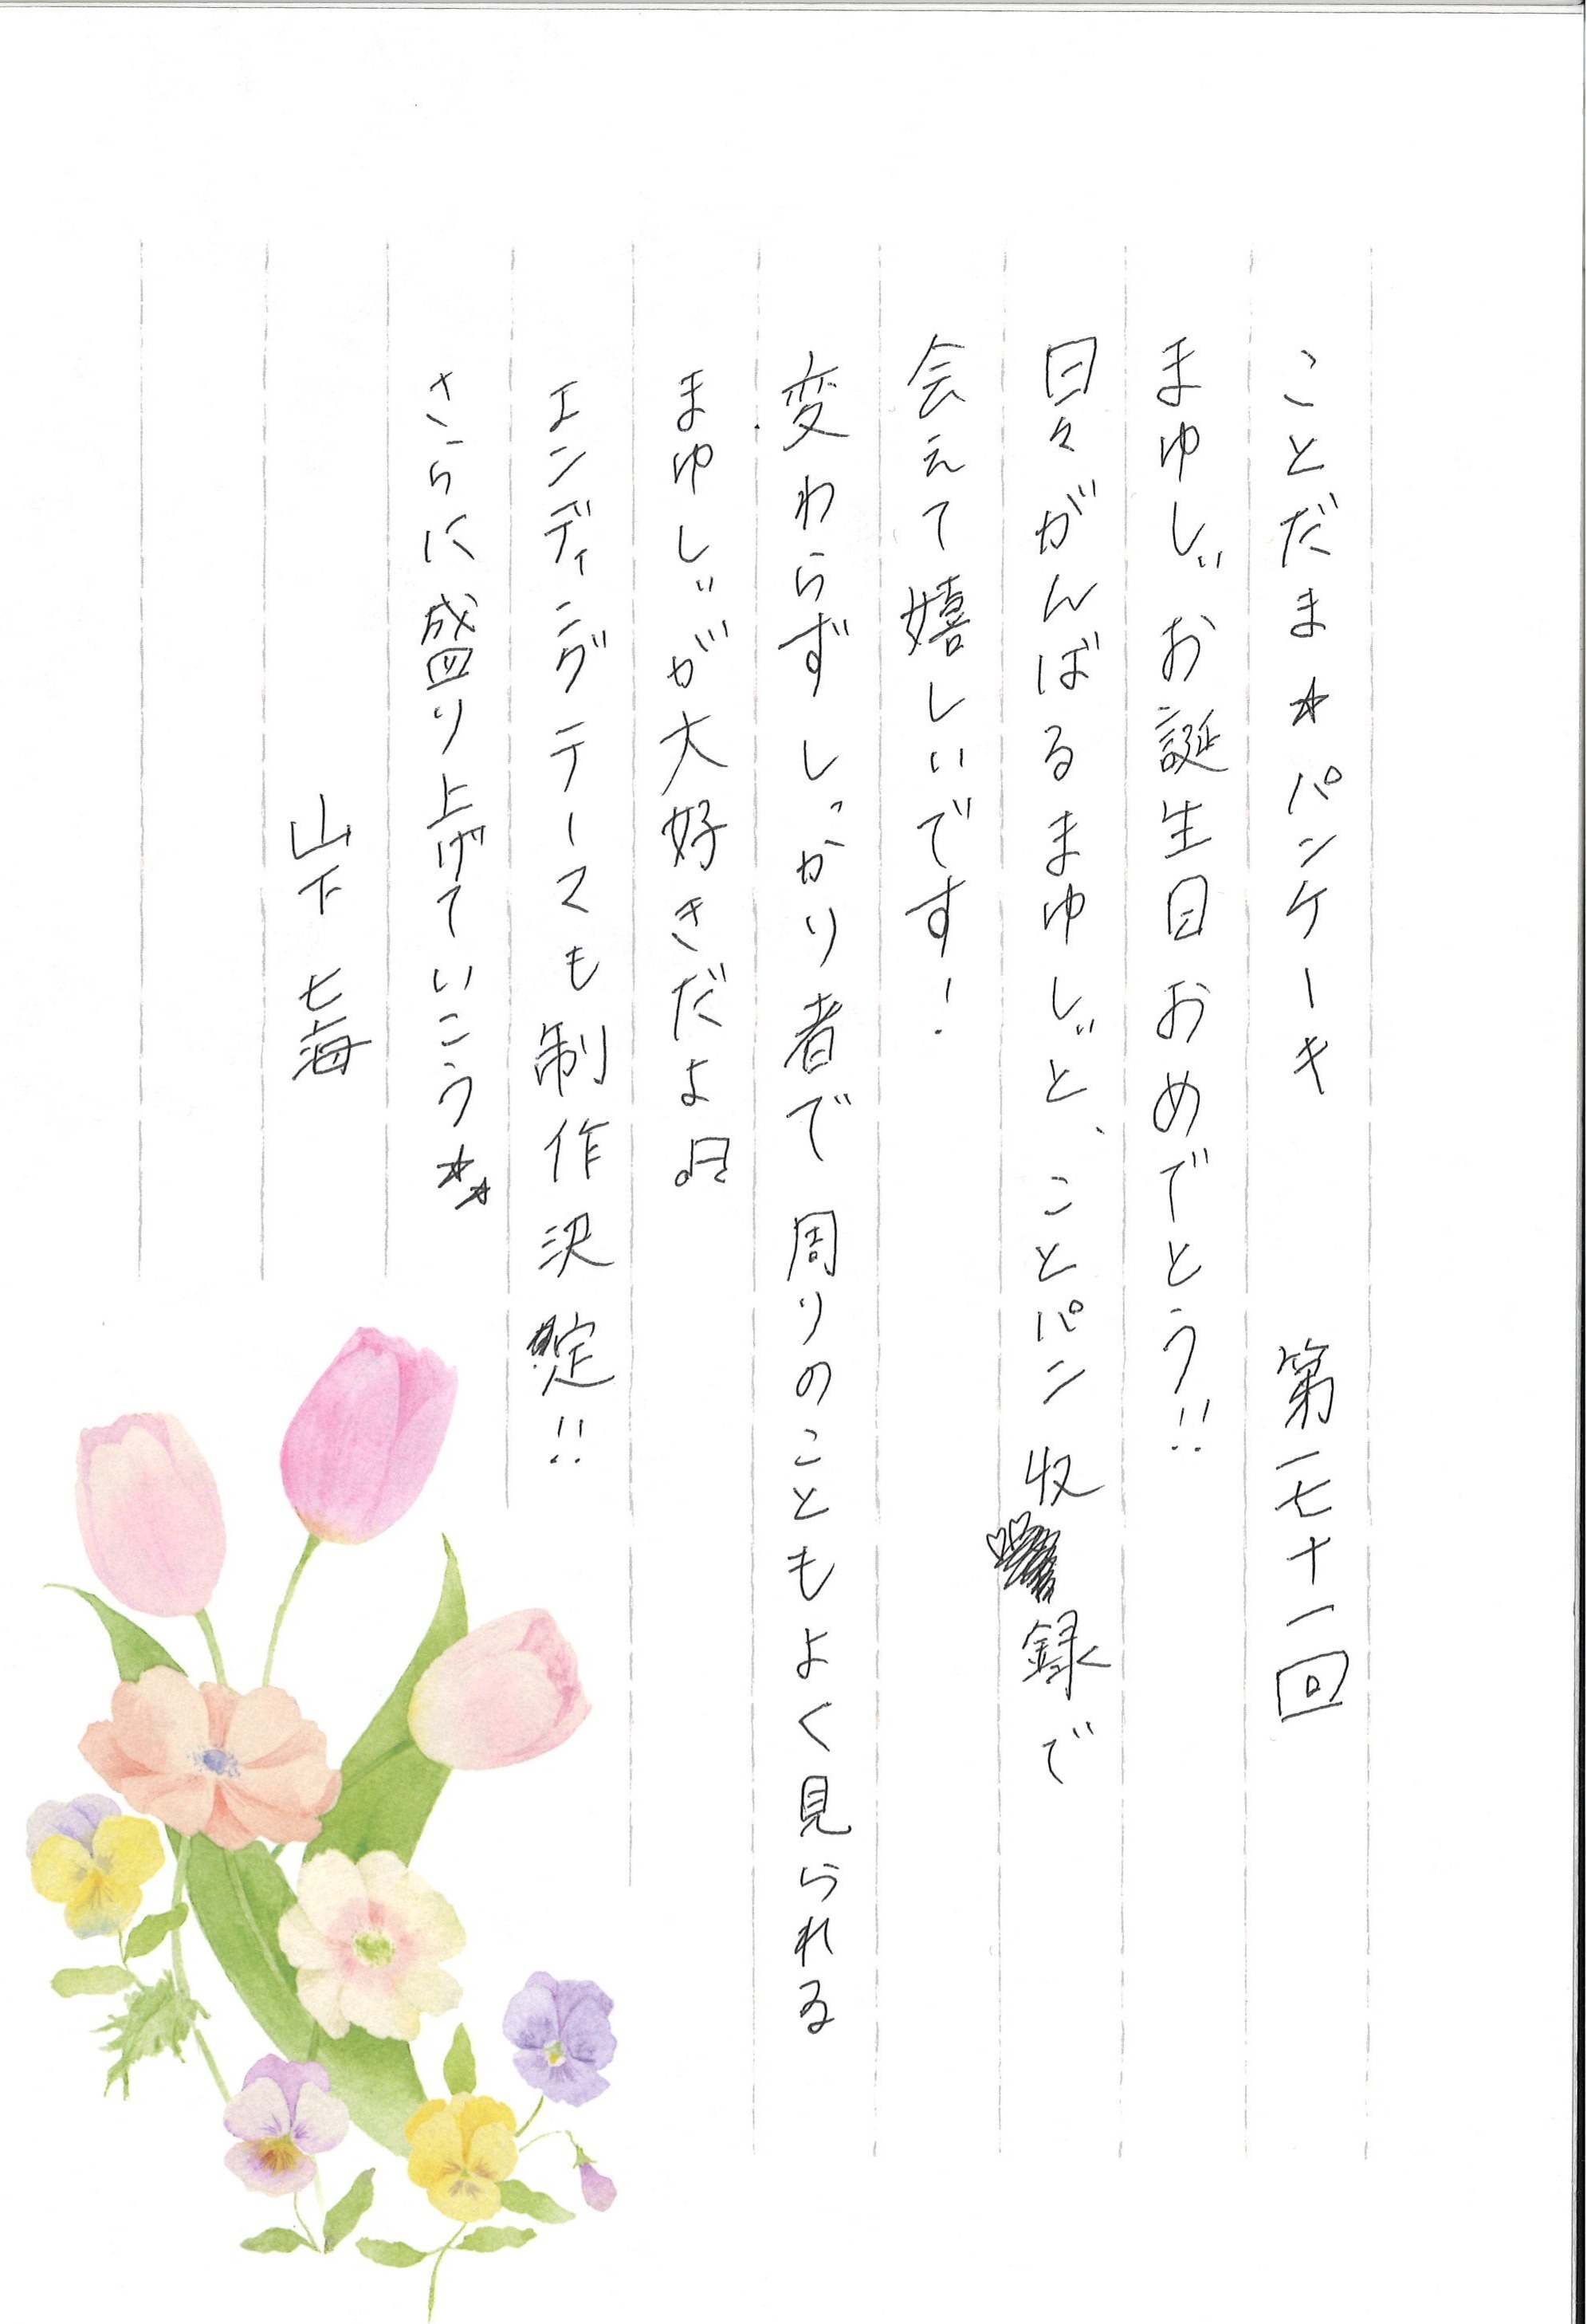 ことだま☆パンケーキ 第一七十一回
まゆしぃお誕生日おめでとう!!
日々がんばるまゆしぃと、ことパン収録で
会えて嬉しいです!
変わらずしっかり者で周りのこともよく見られる
まゆしぃが大好きだよ♫
エンディングテーマも制作決定!!
さらに盛り上げていこう☆☆
山下七海